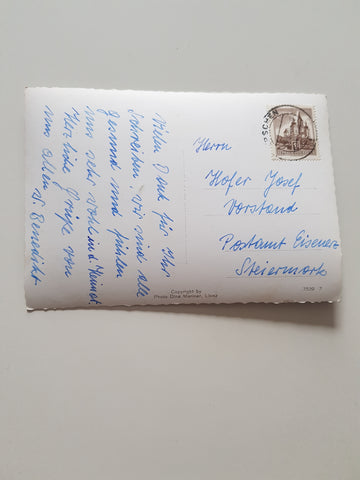 Vielen Dank für Ihr
Schreiben, wir sind alle
gesund und fühlen
uns sehr wohl in d. Heimat.
Herzliche Grüße von
uns allen
Herrn
Hofer Josef
Vorstand
Postamt Eisenerz
Steiermark
Copyright by
Photo Dina Mariner, Lienz
7529